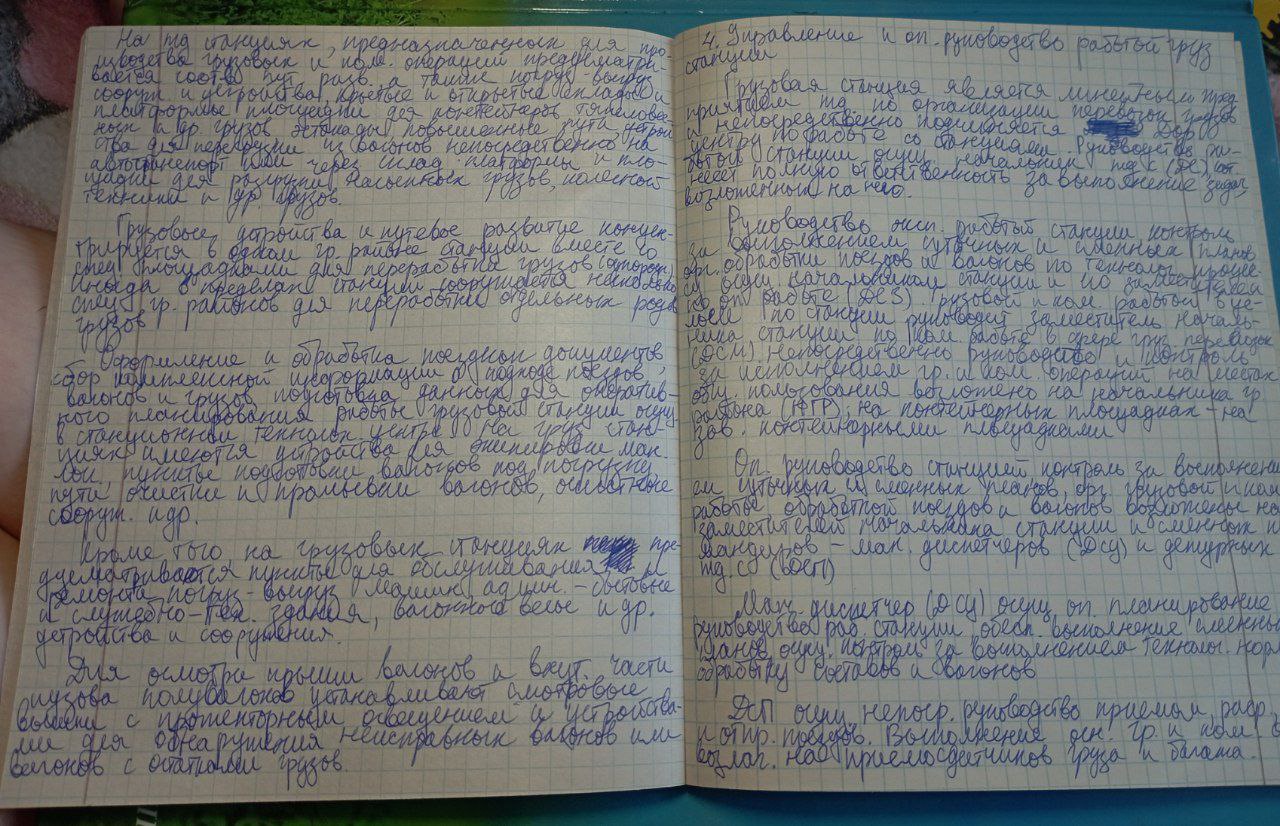 На жд станциях, предназначенных для про-
изводства грузовых и ком. операций предусматри-
вается соотв. пут. разв. а также погруз-выгруз
сооруж и устройства, крытые и открытые склады и
платформы площадки для контейнеров тяжеловес-
ных и др. грузов эстакады повышенные пути устрой
ства для перегрузки из вагонов непосредственно на
автотранспорт или через склад. платформы и пло-
щадки для разгрузки насыпных грузов, колесной
техники и др. грузов.
Грузовые устройства и путевое развитие концен-
трируется в одном гр. районе станции вместе со
спец площадками для переработки грузов
иногда в пределах станции сооружается несколько
спец. гр. районов для переработки отдельных родов
грузов
Оформление и обработка поездных документов,
сбор комплексной информации о подходе поездов,
вагонов и грузов, подготовка данных для оператив-
ного планирования работы грузовой станции осущ
в станционном технолог. центре. На груз. стан-
циях имеются устройства для экипировки ман.
лок, пункты подготовки вагонов под погрузку
пути очистки и промывки вагонов, очистные
сооруж. и др.
Кроме того на грузовых станциях пре-
дусматриваются пункты для обслуживания и
ремонта погруз-выгруз машин, админ.-бытовые
и служебно-тех. здания, вагонные весы и др.
устройства и сооружения.
Для осмотра крыши вагонов и внут. части
кузова полувагонов устанавливают смотровые
вышки с прожекторным освещением и устройства-
ми для обнаружения неисправных вагонов или
вагонов с остатками грузов.
4. Управление и оп. руководство работой груз
станции
Грузовая станция является линейным пред
приятием жд. по организации перевозок грузов
и непосредственно подчиняется Дор
центру по работе со станциями. Руководство ра-
ботой станции осущ. начальник жд с (ДС)
несёт полную ответственность за выполнение задач,
возложенных на него.
Руководство эксп. работой станции контроль
за выполнением суточных и сменных планов
орг. обработки поездов и вагонов по технолог. процес
су осущ. начальником станции и его заместителем
по оп. работе (ДСЗ). грузовой и ком. работой в це-
лом по станции руководит заместитель началь-
ника станции по ком. работе в сфере груз. перевозок
(ДСМ), непосредственно руководство и контроль
за исполнением гр. и ком операций на местах
общ. пользования возложено на начальника гр.
района (НГР), на контейнерных площадках - на
зав. контейнерными площадками
Оп. руководство станцией контроль за выполнени
ем суточных и сменных планов, орг. грузовой и ком
работы обработкой поездов и вагонов возложены на
заместителей начальника станции и сменных ко
мандиров - ман. диспетчеров (ДСЦ) и дежурных
жд. с. (ДСП)
Ман. диспетчер (ДСЦ) осущ. оп. планирование
руководства раб. станции обесп. выполнение сменных
планов осущ. контроль за выполнением технолог. норм
обработку составов и вагонов
ДСП осущ. непоср. руководство приемом, расф.
и отпр. поездов. Выполнение осн. гр. и ком. о
возлаг. на приемосдатчиков груза и багажа.